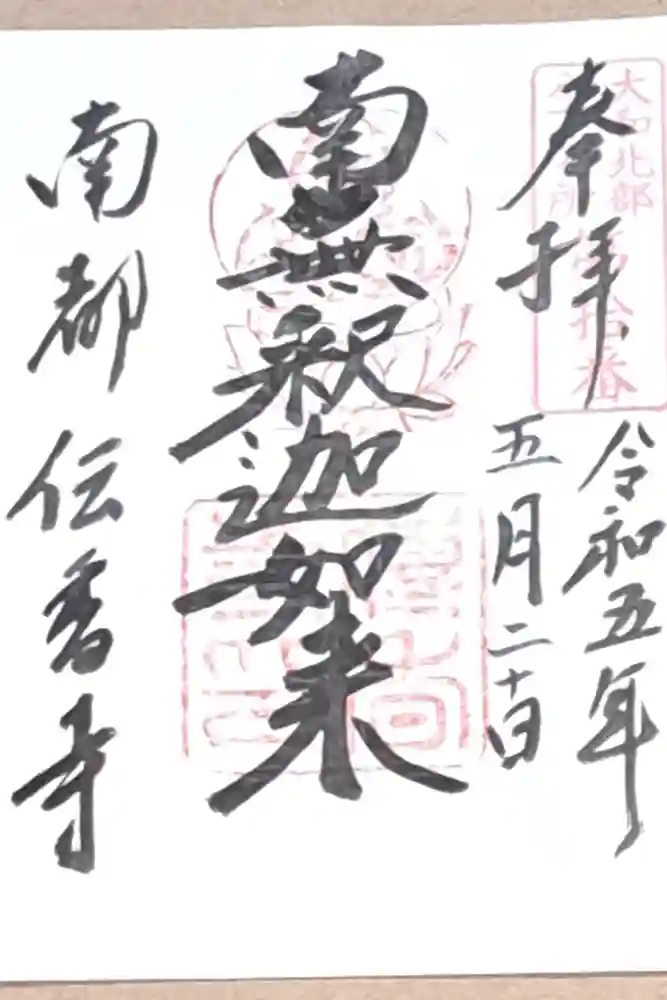 奉拝
大和北部
第拾番
令和五年
五月二十日
南無釈迦如来
南都 伝香寺